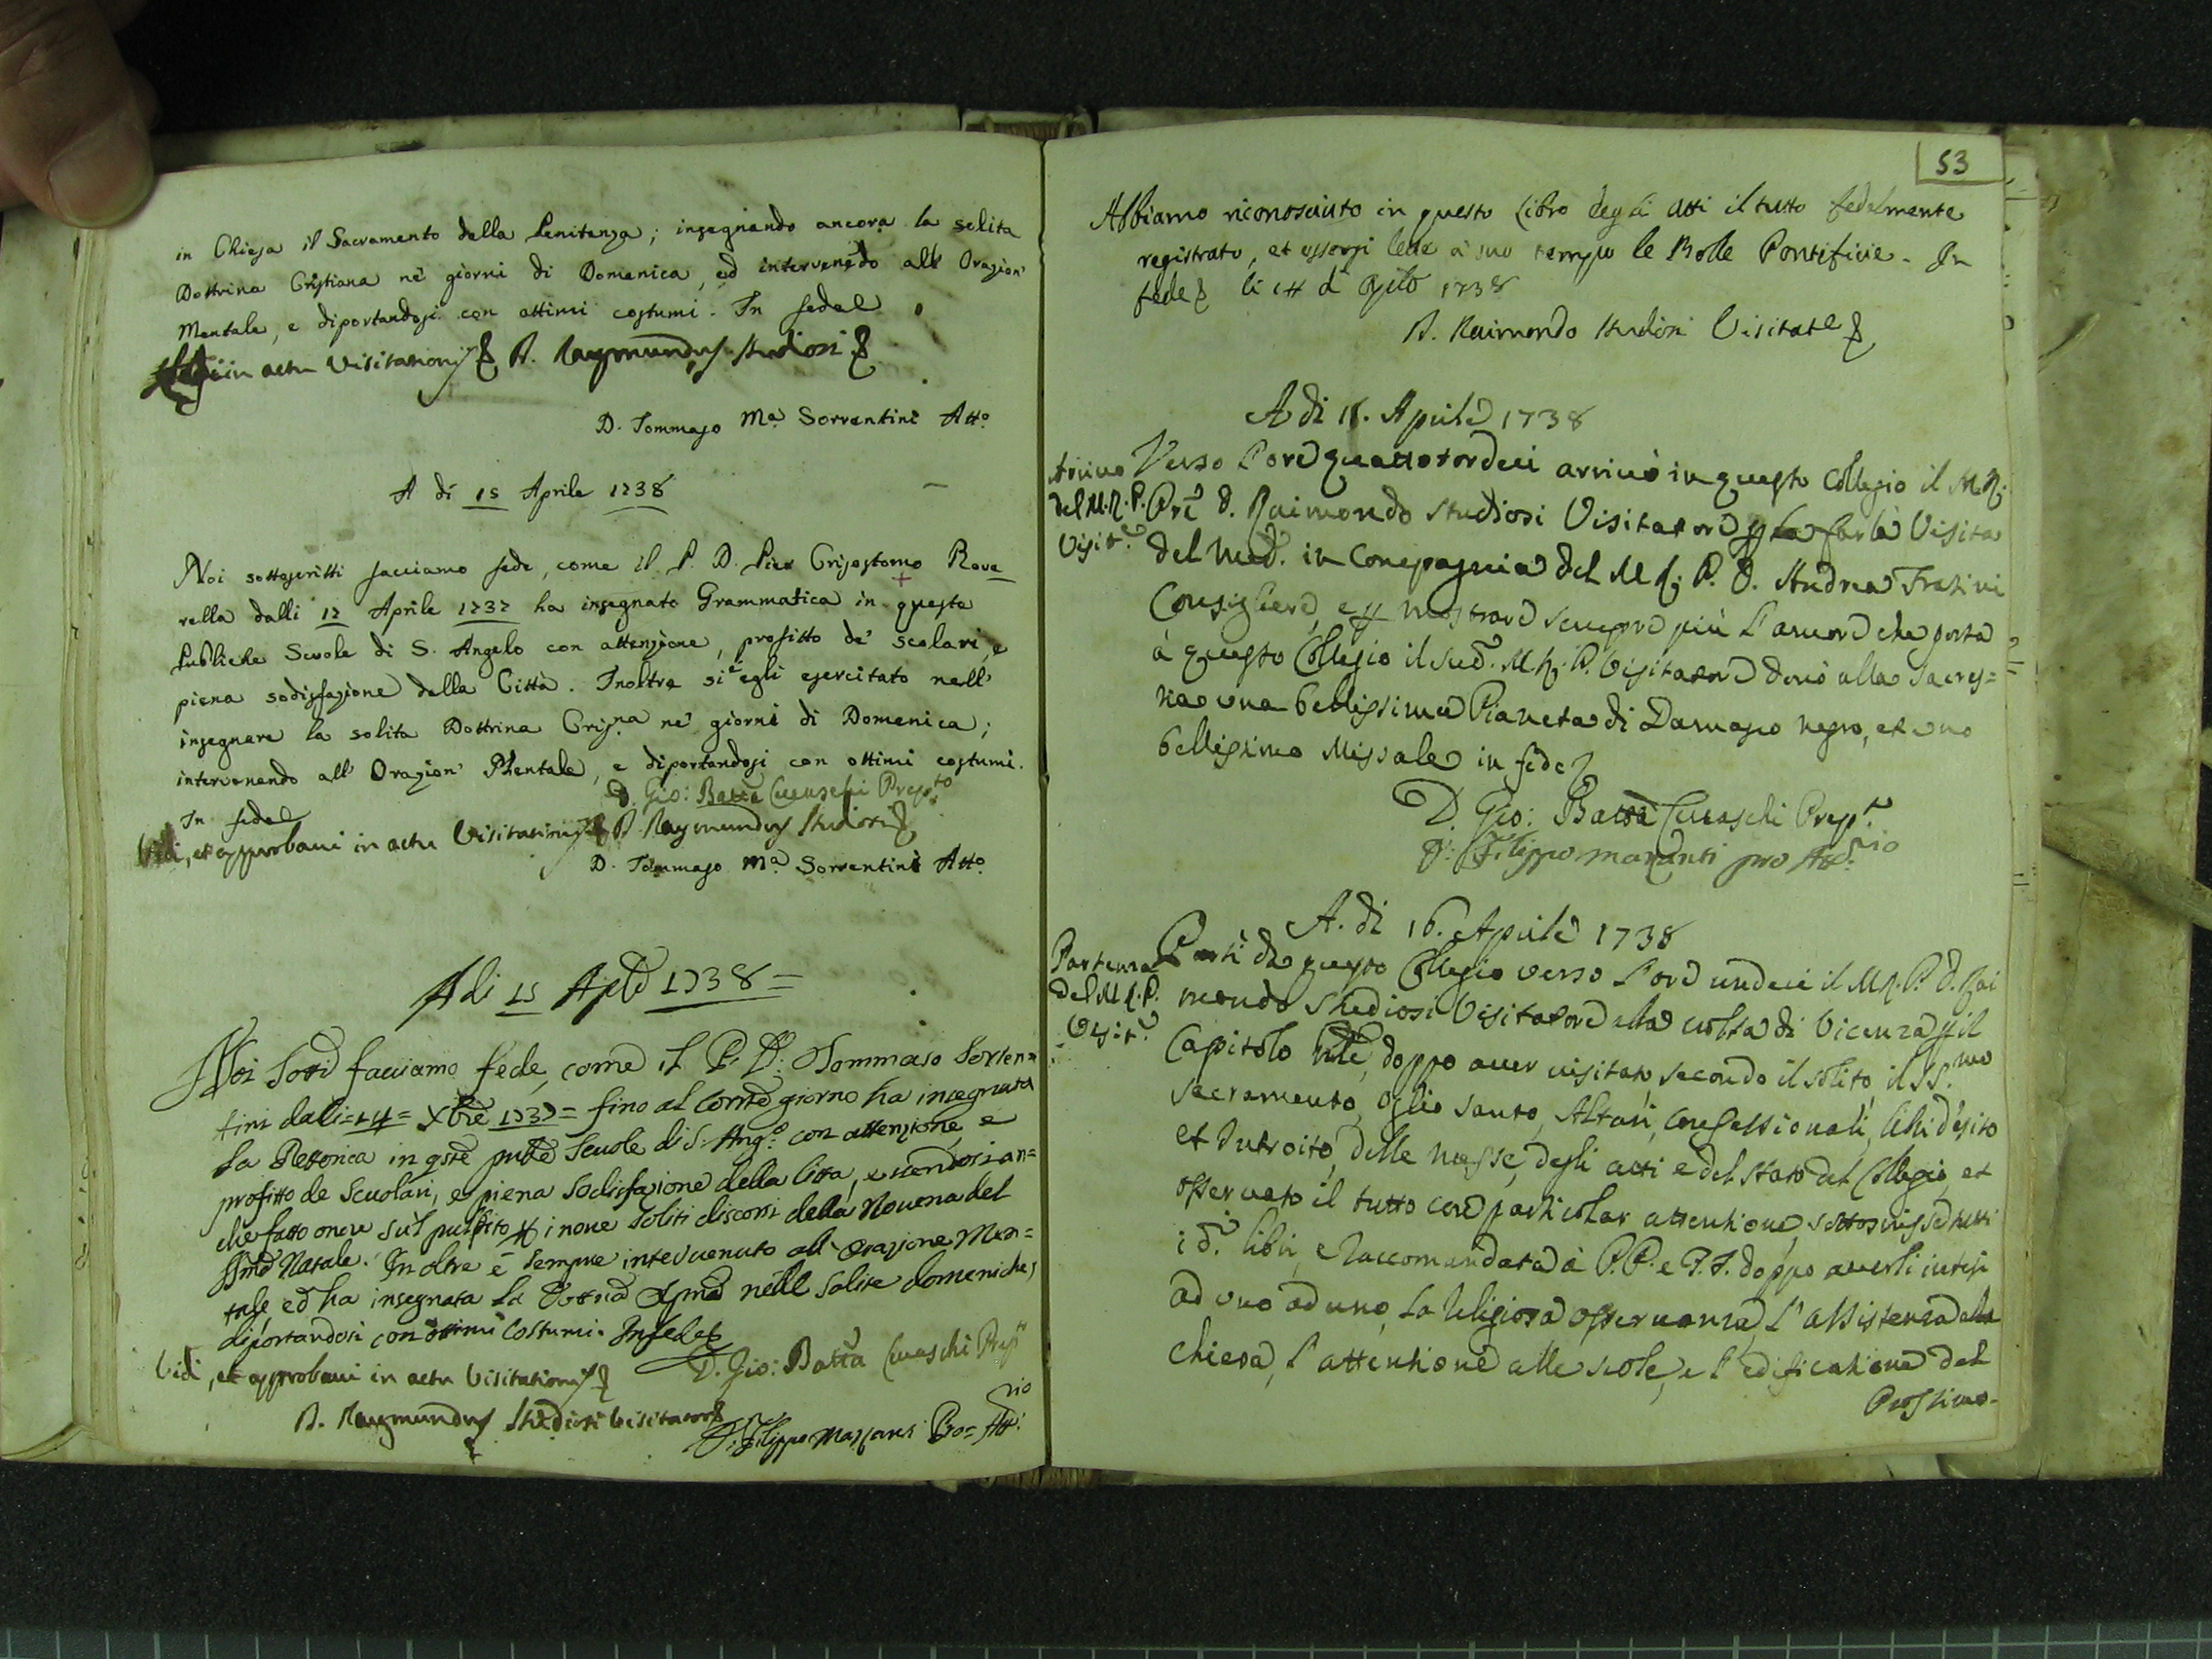 in Chiesa il Sacramento della Penitenza; insegnando ancora la solita
Dottrina Cristiana ne' giorni di Domenica, ed intervenēdo all' Orazion'
Mentale, e diportandosi con ottimi costumi. In fede
in actu Visitationis D. Raymundus Studiosi
D. Tommaso Mª Sorrentini Attº
A dì 15 Aprile 1738
Noi sottoscritti facciamo fede, come il P. D. Pier Grisostomo Rove_
rella dalli 12 Aprile 1737 ha insegnato Grammatica in queste
Publiche Scuole di S. Angelo con attenzione, profitto de' scolari, e
piena sodisfazione della Città. Inoltre si è egli esercitato nell'
insegnare la solita Dottrina Cris.na ne' giorni di Domenica;
intervenendo all' Orazion' Mentale, e diportandosi con ottimi costumi.
D. Gio: Batta Prep.to
In fede
Vidi, et approbavi in actu Visitationis D. Raymundus Studiosi
D. Tommaso Mª Sorrentini Attº
A di 15 Aple 1738=
Noi Sotti facciamo fede, come il P. D: Tommaso Sorren=
tini dalli=14= Xbre 1737= fino al Corrte giorno ha insegnata
la Rettorica in qste pubbe Scuole di S: Ang.º con attenzione, e
profitto de Scuolari, e piena sodisfazione della Citta, essendosi an=
che fatto onore sul pulpito i nove soliti discorsi della Novena del
SSmo Natale. In oltre è sempre intervenuto all' Orazione Men=
tale ed ha insegnata la Dottrina nelle solite domeniche,
diportandosi con ottimi Costumi. In fede
D. Gio: Batta Prep.to
Vidi, et approbavi in actu Visitationis
D. Raymundus Studiosi Visitator
Filippo Pro= Att.rio
53
Abbiamo riconosciuto in questo libro degli Atti il tutto fedelmente
registrato, et essersi lette a suo tempo le Bolle Pontificie. In
fede li 14 d' 1738
D. Raimondo Studiosi Visitat.e
A di 11. Aprile 1738
Arrivo
del M.R.P.
Visit.e
Verso l'ore quattordeci arrivò in questo Collegio il M.R.
Pre D. Raimondo Studiosi Visitatore p far la Visita
del med. in Compagnia del M.R. P. D. Andrea Frasini
Consigliere, e p mostrare sempre più l'amore che porta
à questo Collegio il sud. M.R. P. Visitatore donò alla Sacres=
tia una bellissima Pianeta di Damasco negro, et uno
bellissimo Missale in fede
D. Gio: Batta Prep.to
D: Filippo pro Att.rio
A. di 16. Aprile 1738
Partenza
del M.R.P.
Visit.e
Partì da questo Collegio verso l'ore undeci il M.R. P. D. Rai
mondo Studiosi Visitatore alla volta di Vicenza p il
Capitolo doppo aver visitato secondo il solito, il SS.mo
Sacramento, Oglio Santo, Altari, Confessionali, libri d'esito
et Introito, delle messe, degli atti e del stato del Collegio, et
osservato il tutto con particolar attentione, sottoscrisse tutti
i d.i libri, e raccomandata à P.P. e F.F. doppo averli intesi
ad uno ad uno, la religiosa osservanza, l'assistenza alla
chiesa, l'attentione alle scole, e l'edificatione del
Prossimo.